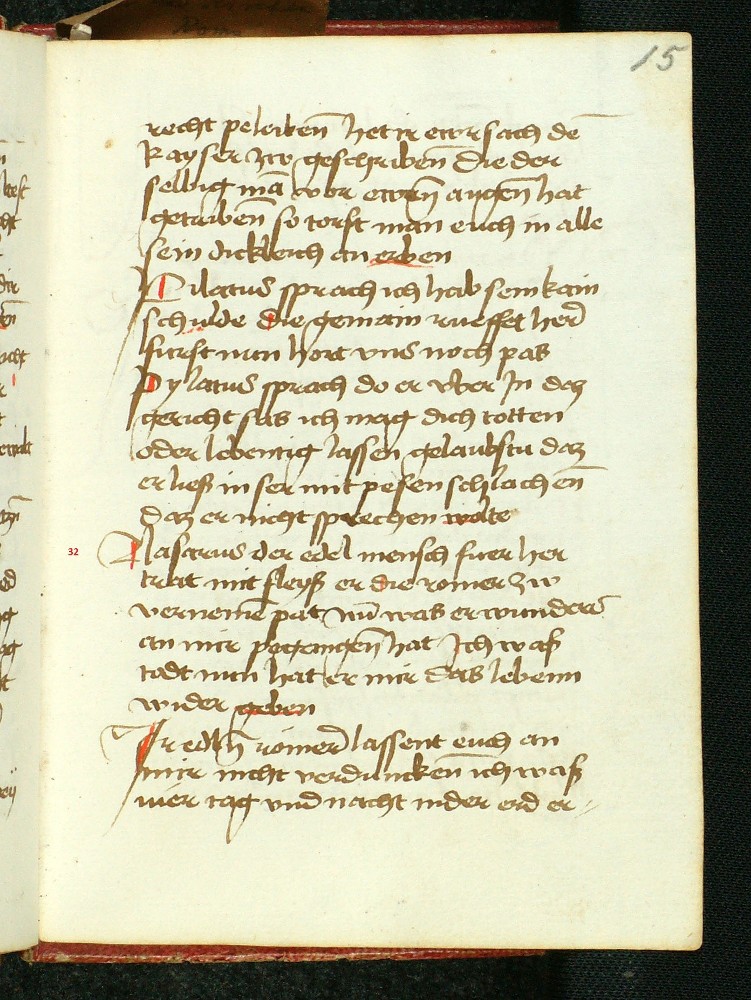 15
recht peleiben̄ het ir ewr sach de͞
kayser zw geschriben̄ die der
selbig mā vor ewrn̄ augen̄ hat
getriben̄ so torst man euch in alle
sein dicklerch an erben
Pilatus sprach ich hab sein kain
schulde die gemain rueffet her
furst nun hort vns noch pas
Pylatus sprach do er vber In daz
gericht sas ich mag dich totten
oder lebentig lassen gelaubstu daz
er ließ in ser mit pesen schlachen̄
daz er nicht sprechen wolte
32
Lasarus der edel mensch fuer her
trat mit fleyß er die romer zw
verneme͞ pat nu͞ was er wunders
an mir pegangen̄ hat Ich waß
todt nun hat er mir das lebenn
wider geben
Ir edlen̄ romer lassent euch an
mir nicht verduncken̄ ich waß
vier tag vnd nacht in der erd er